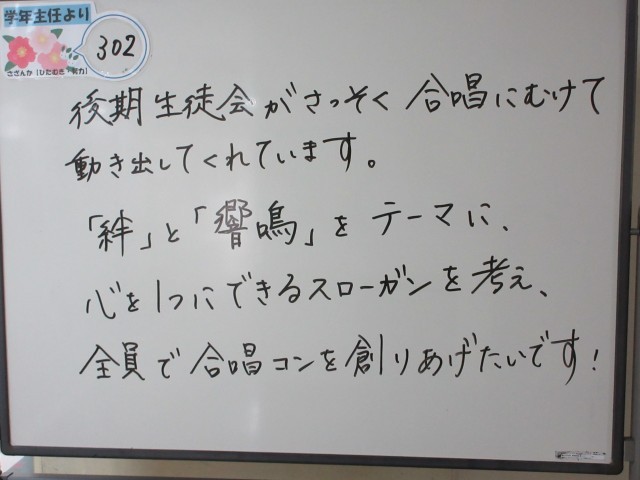 学年主任より
302
さざんか【ひたむき 努力】
後期生徒会がさっそく合唱にむけて
動き出してくれています。
「絆」と「響鳴」をテーマに、
心を1つにできるスローガンを考え、
全員で合唱コンを創りあげたいです!